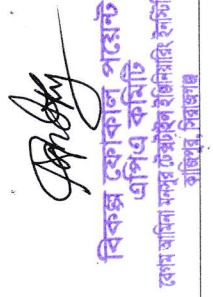 বিকল্প ফোকাল পয়েন্ট
এপিএ কমিটি
বেগম আমিনা মনসুর টেক্সটাইল ইঞ্জিনিয়ারিং ইনস্টি
কাজিপুর, সিরাজগঞ্জ